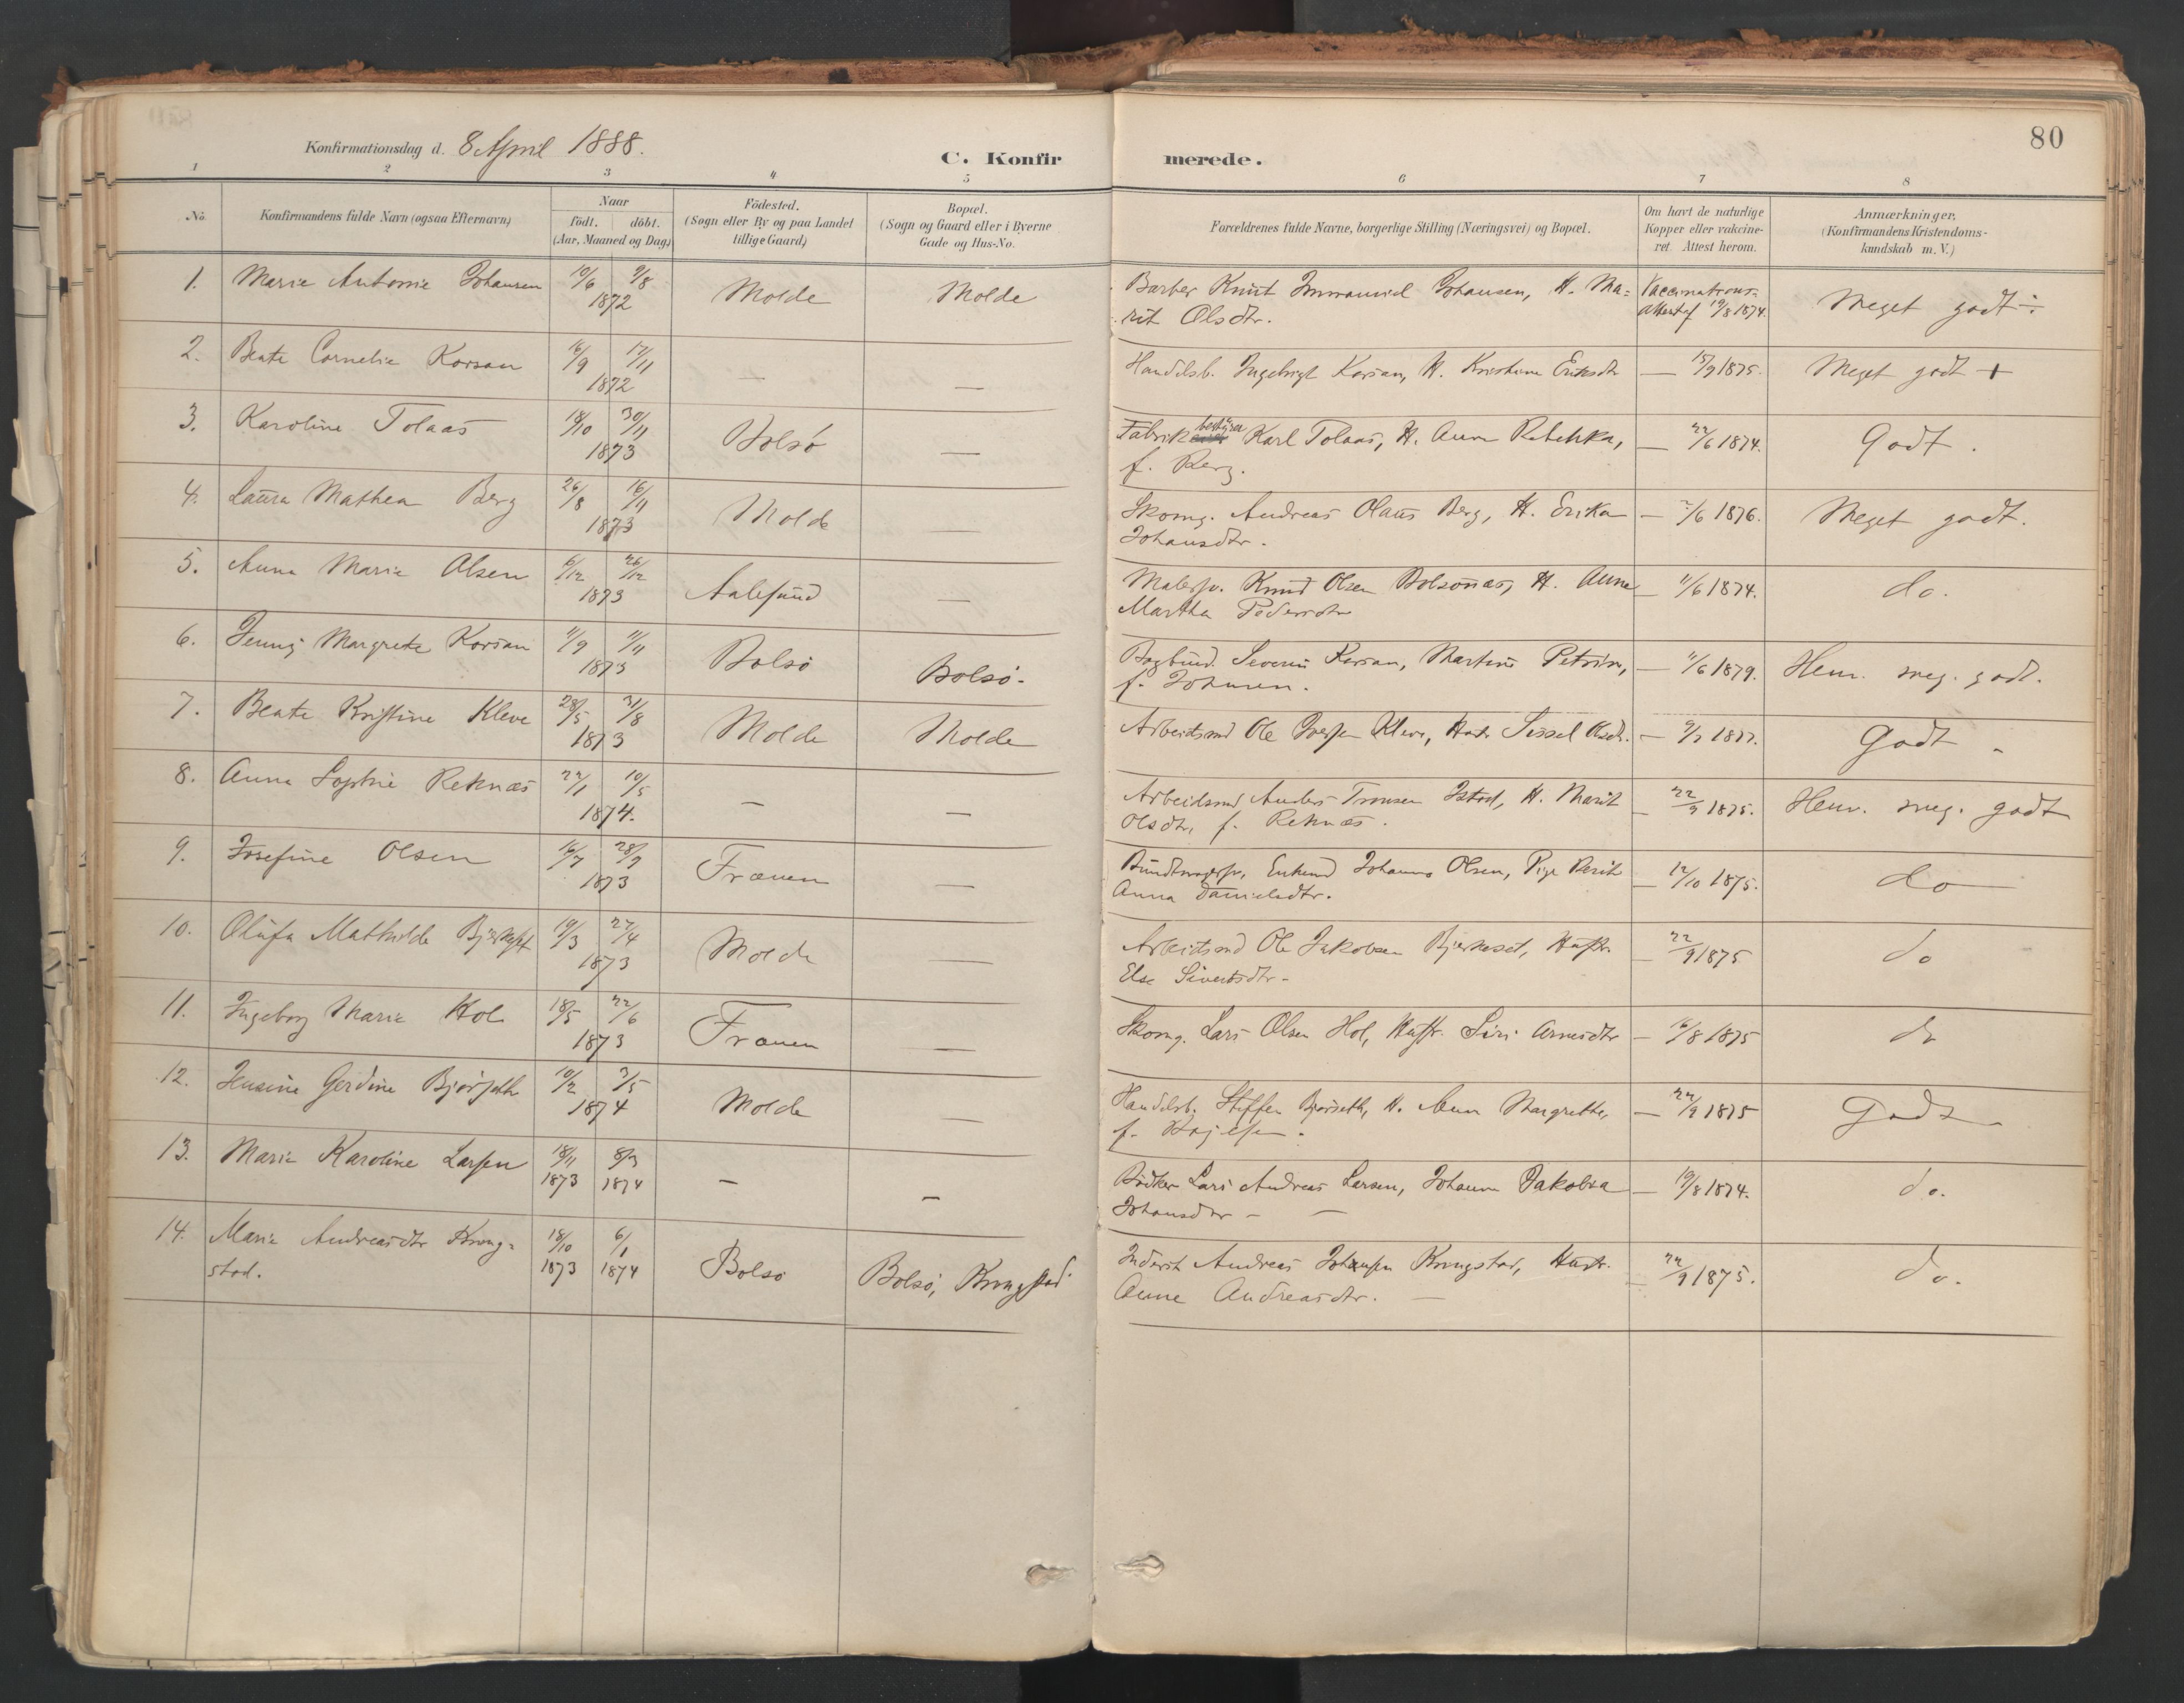 80
Konfirmationsdag d. 8 April 1888.
C. Konfirmerede.
1 2 3 4 5 6 7 8
No. Konfirmandens fulde Navn (ogsaa Efternavn) Naar födt. döbt. (Aar, Maaned og Dag) Födested. (Sogn eller By og paa Landet tillige Gaard) Bopæl. (Sogn og Gaard eller i Byerne Gade og Hus-No. Forældrenes fulde Navne, borgerlige Stilling (Næringsvei) og Bopæl. Om havt de naturlige Kopper eller vakcineret. Attest herom. Anmærkninger. (Konfirmandens Kristendomskundskab m. V.)
1. Marie Antonie Johansen 10/6 9/8 1872 Molde Molde Barber Knut Immanuel Johansen, H. Ma=
rit Olsdtr. Vaccinations=
Attest af 19/8 1874. Meget godt ÷
2. Beate Cornelie Korsan 16/9 17/11 1872 — — Handelsb. Ingebrigt Korsan, H. Kristine Eriksdtr — 15/9 1875. Meget godt +
3. Karoline Tolaas 18/10 30/11 1873 Bolsö — Fabrikbestyrer Karl Tolaas, H. Anne Rebekka,
f. Berg. — 22/6 1874. Godt.
4. Laura Mathea Berg 26/8 16/11 1873 Molde — Skomg. Andreas Olaus Berg, H. Erika
Johansdtr. — 2/6 1876. Meget godt.
5. Anna Marie Olsen 6/12 26/12 1873 Aalesund — Malersv. Knud Olsen Bolsönæs, H. Anne
Martha Pedersdtr — 11/6 1874. do.
6. Jenny Margrete Korsan 11/9 11/11 1873 Bolsö Bolsö. Bogbind. Severin Korsan, Martine Petrine,
f. Johnsen. — 11/6 1879. Henv. meg. godt.
7. Beate Kristine Kleve 28/5 31/8 1873 Molde Molde Arbeidsmd Ole Iversen Kleve, Hustr Sissel Olsdtr. — 9/7 1877. Godt.
8. Anna Sophie Reknæs 22/1 10/5 1874. — — Arbeidsmd Anders Tronsen Istad, H. Marit
Olsdtr, f. Reknæs. — 22/9 1875. Henv. meg. godt
9. Josefine Olsen 16/7 28/9 1873 Frænen — Bundtmagersv, Enkemd Johannes Olsen, Pige Berit
Anna Danielsdtr. — 12/10 1875. do
10. Olufa Mathilde Bjerkeset 19/3 27/4 1873 Molde — Arbeidsmd Ole Jakobsen Bjerkeset, Hustr.
Else Sivertsdtr. — 22/9 1875 do
11. Ingeborg Marie Hol 18/5 22/6 1873 Frænen — Skomg. Lars Olsen Hol, Hustr. Siri Arnesdtr — 16/8 1875 do
12. Jensine Gerdine Bjørseth 10/2 3/5 1874 Molde — Handelsb. Steffen Bjørseth, H. Anne Margrethe,
f. — 22/9 1875 Godt
13. Marie Karoline Larsen 18/11 1873 8/3 1874 — — Bödker Lars Andreas Larsen, Johanne Jakobea
Johansdtr — — 19/8 1874. do.
14. Marie Andreasdtr Kring=
stad. 18/10 1873 6/1 1874 Bolsö Bolsö, Kringstad. Inderst Andreas Johansen Kringstad, Hustr.
Anne Andreasdtr. — 22/9 1875. do.